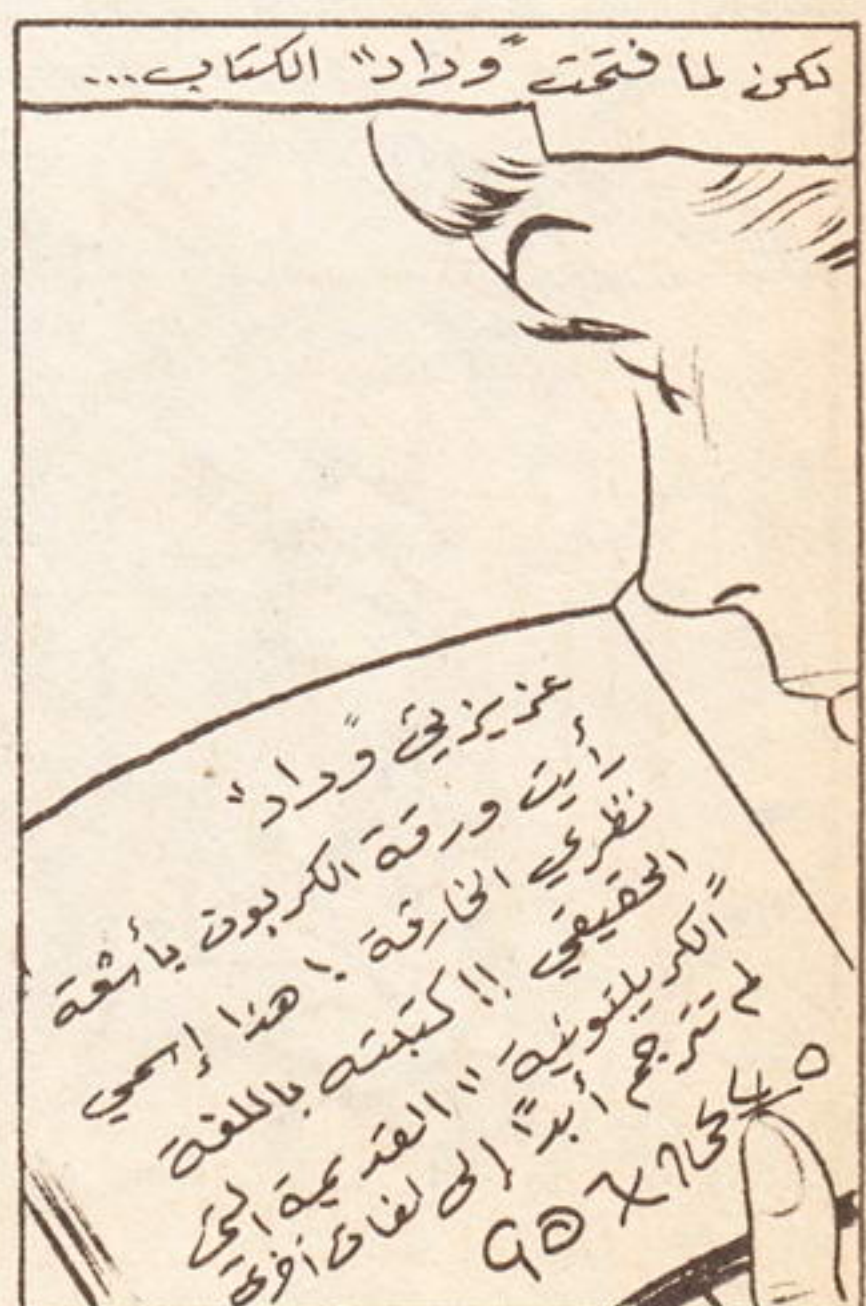 لكن لما فتحت "وداد" الكتاب...
عزيزتي "وداد"
رأيت ورقة الكربون بأشعة
نظري الخارقة! هذا إسمي
الحقيقي!! كتبته باللغة
"الكريبتونية" القديمة التي
لم تترجم أبدًا إلى لغات أخرى